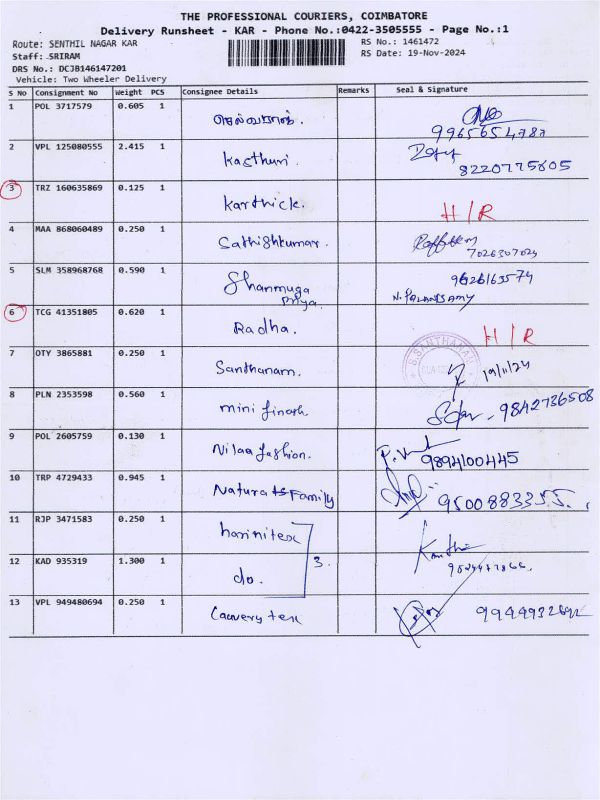 THE PROFESSIONAL COURIERS, COIMBATORE
Delivery Runsheet - KAR - Phone No.:0422-3505555 - Page No.:1
Route: SENTHIL NAGAR KAR
RS No.: 1461472
Staff: SRIRAM
RS Date: 19-Nov-2024
DRS No.: DCJB146147201
Vehicle: Two Wheeler Delivery
S No Consignment No Weight PCS Consignee Details Remarks Seal & Signature
1 POL 3717579 0.605 1
9965654787
2 VPL 125080555 2.415 1 Kasthuri.
8220775605
3 TRZ 160635869 0.125 1 Karthick. H/R
4 MAA 868060489 0.250 1 Sathishkumar.
7026307024
5 SLM 358968768 0.590 1 Shanmuga Priya. 9626163574
N. PALANISAMY
6 TCG 41351805 0.620 1 Radha. H/R
7 OTY 3865881 0.250 1 Santhanam. S.SANTHANAM 19/11/24
8 PLN 2353598 0.560 1 mini finosh. 9842736508
9 POL 2605759 0.130 1 Nilaa fashion. 9894100445
10 TRP 4729433 0.945 1 Naturals Family 9500883355.
11 RJP 3471583 0.250 1 harinitex
3.
12 KAD 935319 1.300 1 do.
13 VPL 949480694 0.250 1 Cauvery tex